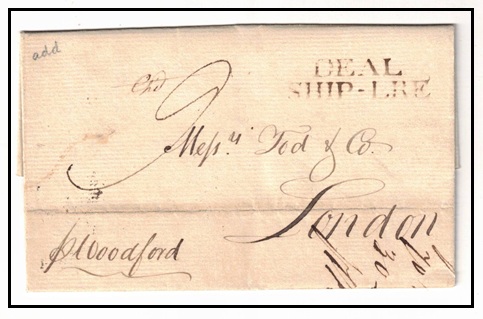 add
DEAL
SHIP-LRE
Messrs Tod & Co.
London
p Woodford